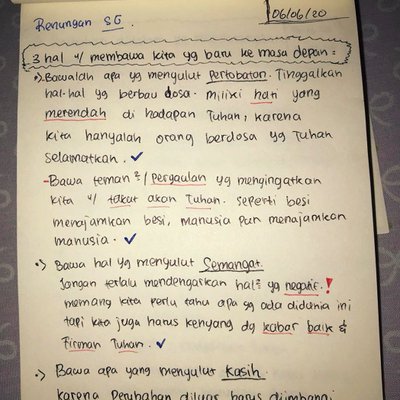 Renungan SG.
06/06/20
3 hal u/ membawa kita yg baru ke masa depan:
•). Bawalah apa yg menyulut Pertobatan. Tinggalkan
hal-hal yg berbau dosa. miliki hati yang
merendah di hadapan Tuhan, karena
kita hanyalah orang berdosa yg Tuhan
selamatkan. ✓
- Bawa teman²/ pergaulan yg mengingatkan
kita u/ takut akan Tuhan. seperti besi
menajamkan besi, manusia pun menajamkan
manusia. ✓
•) Bawa hal yg menyulut Semangat.
Jangan terlalu mendengarkan hal² yg negatif. !
memang kita perlu tahu apa yg ada didunia ini
tapi kita juga harus kenyang dg kabar baik &
Firman Tuhan. ✓
•) Bawa apa yang menyulut kasih
karena Perubahan diluar harus diimbangi